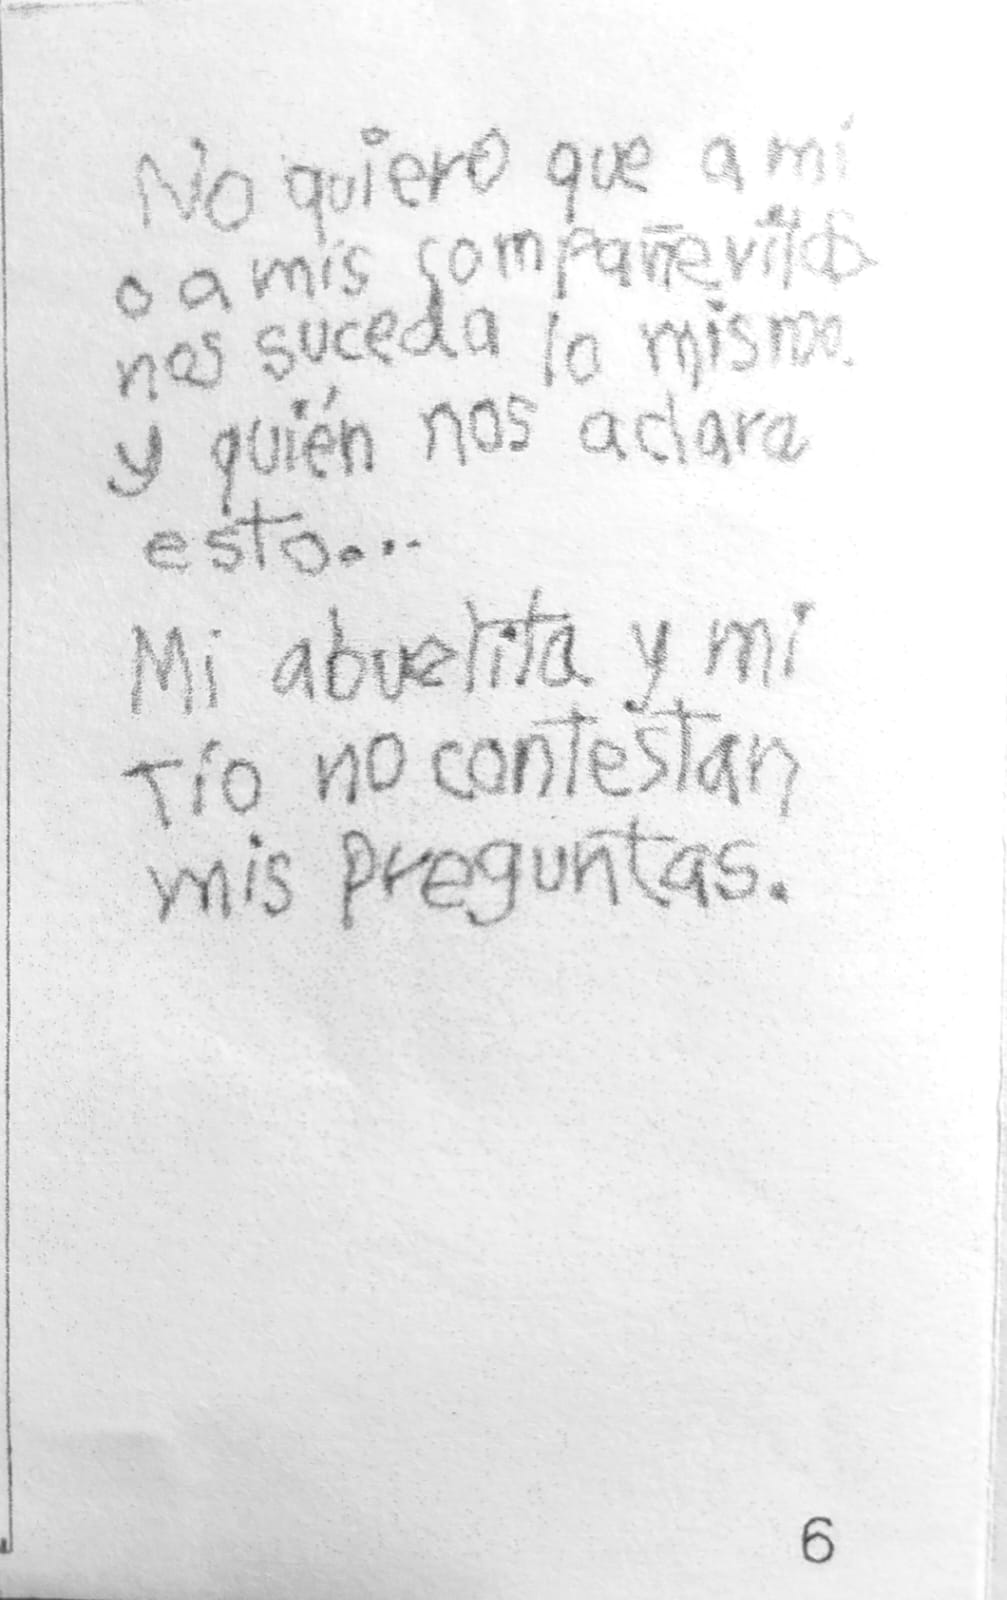 No quiero que a mi
o a mis compañeritos
nos suceda lo mismo.
y quién nos aclara
esto...
Mi abuelita y mi
Tío no contestan
mis preguntas.
6